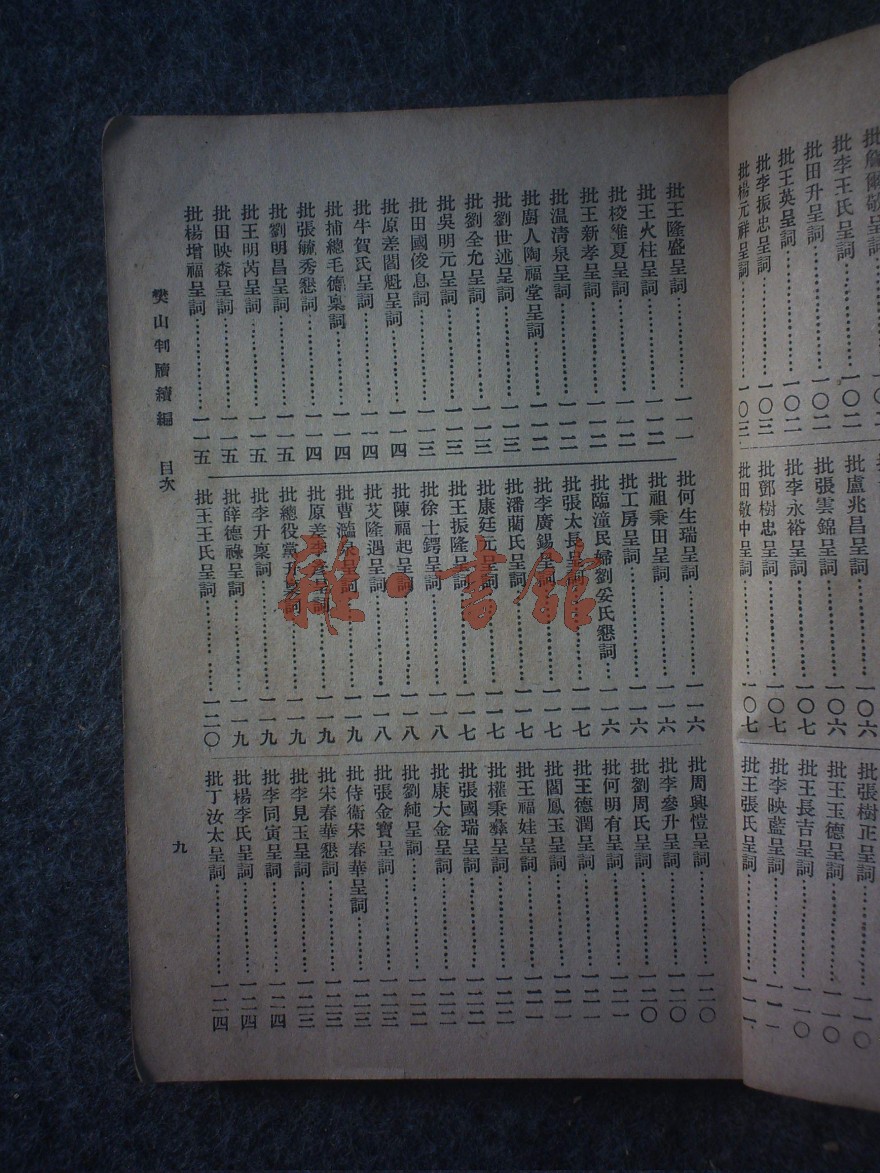 批詹爾敬呈詞
批李王氏呈詞⋯⋯一〇二
批田升呈詞⋯⋯一〇二
批王英呈詞⋯⋯一〇二
批李振忠呈詞⋯⋯一〇三
批楊元祥呈詞⋯⋯一〇三
批盧兆昌呈詞⋯⋯一〇六
批張雲錦呈詞⋯⋯一〇六
批李永裕呈詞⋯⋯一〇七
批鄧樹忠呈詞⋯⋯一〇七
批田敬中呈詞⋯⋯一〇七
批張樹正呈詞⋯⋯一一〇
批王玉德呈詞⋯⋯一一〇
批王長吉呈詞⋯⋯一一〇
批李映藍呈詞⋯⋯一一一
批王張氏呈詞⋯⋯一一一
批王隆盛呈詞⋯⋯一一一
批王火柱呈詞⋯⋯一一二
批棱維夏呈詞⋯⋯一一二
批王新孝呈詞⋯⋯一一二
批温清泉呈詞⋯⋯一一二
批廚人陶福堂呈詞⋯⋯一一二
批劉世逃呈詞⋯⋯一一三
批劉全允呈詞⋯⋯一一三
批吳明元呈詞⋯⋯一一三
批田國俊息詞⋯⋯一一三
批原差閻魁呈詞⋯⋯一一四
批牛賀氏呈詞⋯⋯一一四
批捕總毛德稟詞⋯⋯一一四
批張毓秀懇詞⋯⋯一一四
批劉明昌呈詞⋯⋯一一五
批王明芮呈詞⋯⋯一一五
批田映森呈詞⋯⋯一一五
批楊增福呈詞⋯⋯一一五
批何生瑞呈詞⋯⋯一一六
批祖秉田呈詞⋯⋯一一六
批工房呈詞⋯⋯一一六
批臨潼民婦劉妥氏懇詞⋯⋯一一六
批張太長呈詞⋯⋯一一七
批李廣錫呈詞⋯⋯一一七
批潘藺氏呈詞⋯⋯一一七
批康廷元呈詞⋯⋯一一七
批王振隆呈詞⋯⋯一一七
批徐士鍔呈詞⋯⋯一一八
批陳福起呈詞⋯⋯一一八
批艾隆遇呈詞⋯⋯一一八
批曹灩泉呈詞⋯⋯一一九
批原差呈詞⋯⋯一一九
批總役黨升稟詞⋯⋯一一九
批李升稟詞⋯⋯一一九
批薛德祿呈詞⋯⋯一一九
批王王氏呈詞⋯⋯一二〇
批周興愷呈詞⋯⋯一二〇
批李參升呈詞⋯⋯一二〇
批劉周氏呈詞⋯⋯一二〇
批何明有呈詞⋯⋯一二一
批王德潤呈詞⋯⋯一二一
批閻鳳玉呈詞⋯⋯一二一
批王福娃呈詞⋯⋯一二一
批權秉彝呈詞⋯⋯一二二
批張國瑞呈詞⋯⋯一二二
批康大金呈詞⋯⋯一二二
批劉純呈詞⋯⋯一二二
批張金寶呈詞⋯⋯一二三
批侍衛宋春華呈詞⋯⋯一二三
批宋春華懇詞⋯⋯一二三
批李見玉呈詞⋯⋯一二三
批李同寅呈詞⋯⋯一二四
批楊李氏呈詞⋯⋯一二四
批丁汝太呈詞⋯⋯一二四
樊山判牘續編 目次
九
雜·書館